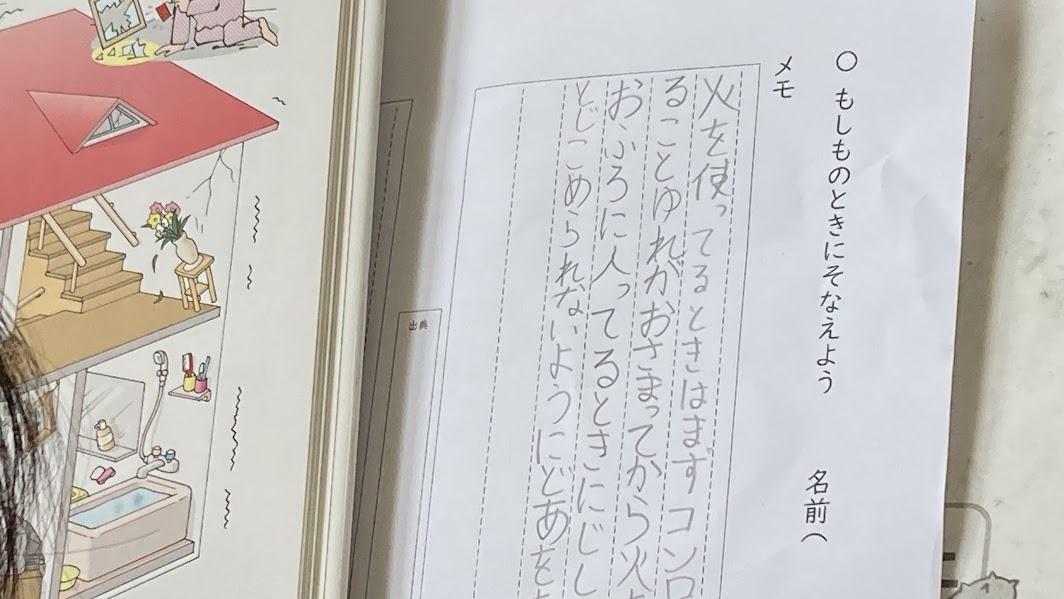 ○ もしものときにそなえよう 名前（
メモ
火を使ってるときはまずコンロ
ることゆれがおさまってから火
おふろに入ってるときにじし
とじこめられないようにどあを
出典